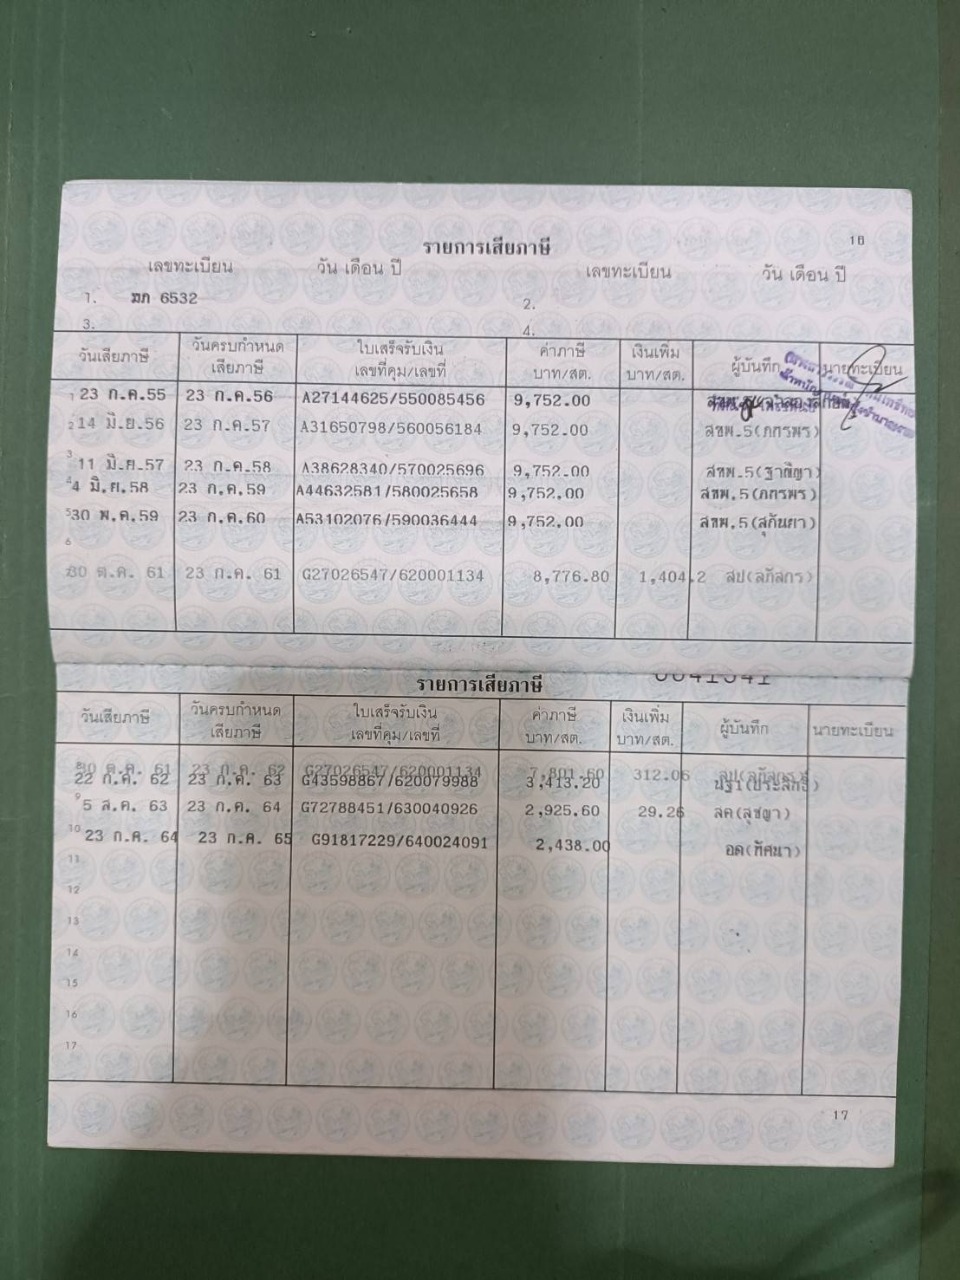 16
รายการเสียภาษี
เลขทะเบียน วัน เดือน ปี เลขทะเบียน วัน เดือน ปี
1. ฆภ 6532 2.
3. 4.
วันเสียภาษี วันครบกำหนด เสียภาษี ใบเสร็จรับเงิน เลขที่คุม/เลขที่ ค่าภาษี บาท/สต. เงินเพิ่ม บาท/สต. ผู้บันทึก นายทะเบียน
1 23 ก.ค.55 23 ก.ค.56 A27144625/550085456 9,752.00
2 14 มิ.ย.56 23 ก.ค.57 A31650798/560056184 9,752.00 สขพ.5(ภกรพร)
3 11 มิ.ย.57 23 ก.ค.58 A38628340/570025696 9,752.00 สขพ.5(ฐาณิญา)
4 4 มิ.ย.58 23 ก.ค.59 A44632581/580025658 9,752.00 สขพ.5(ภกรพร)
5 30 พ.ค.59 23 ก.ค.60 A53102076/590036444 9,752.00 สขพ.5(สุกันยา)
6
30 ต.ค. 61 23 ก.ค. 61 G27026547/620001134 8,776.80 1,404.2 สป(ลภัสกร)
รายการเสียภาษี
วันเสียภาษี วันครบกำหนด เสียภาษี ใบเสร็จรับเงิน เลขที่คุม/เลขที่ ค่าภาษี บาท/สต. เงินเพิ่ม บาท/สต. ผู้บันทึก นายทะเบียน
30 ต.ค. 61 23 ก.ค. 62 G27026547/620001134 7,801.60 312.06
22 ก.ค. 62 23 ก.ค. 63 G43598867/620079988 3,413.20
9 5 ส.ค. 63 23 ก.ค. 64 G72788451/630040926 2,925.60 29.26 ลค(สุชญา)
10 23 ก.ค. 64 23 ก.ค. 65 G91817229/640024091 2,438.00 อด(ทัศนา)
11
12
13
14
15
16
17
17